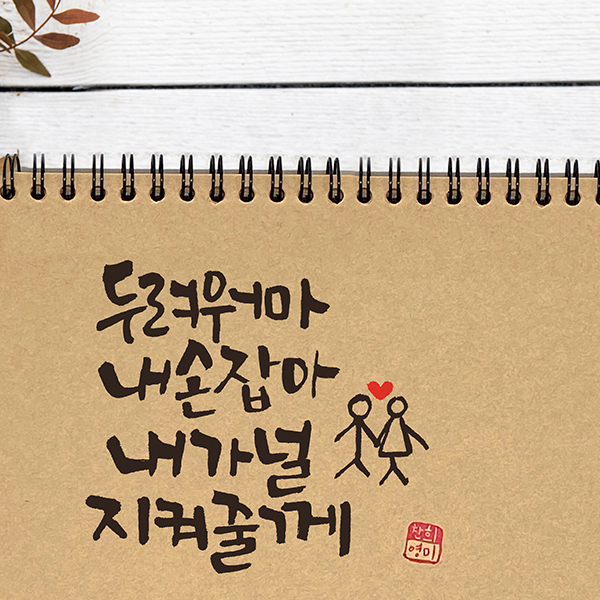 두려워마
내손잡아
내가널
지켜줄게
찬희
영미